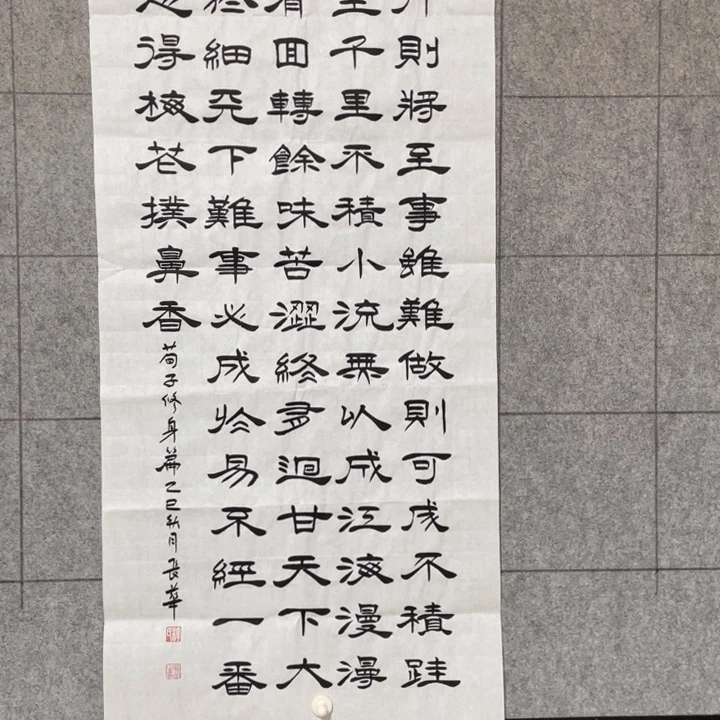 則將至事雖難做則可成不積跬
至千里不積小流無以成江海漫漫
有回轉餘味苦澀終多迴甘天下大
於細天下難事必成於易不經一番
得梅花撲鼻香荀子修身篇乙巳秋月張華